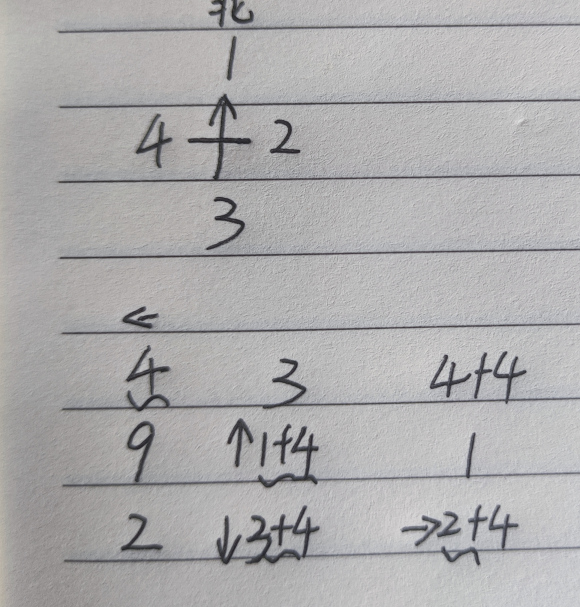 北
1
4 2
3
←
4 3 4+4
9 ↑1+4 1
2 ↓3+4 →2+4